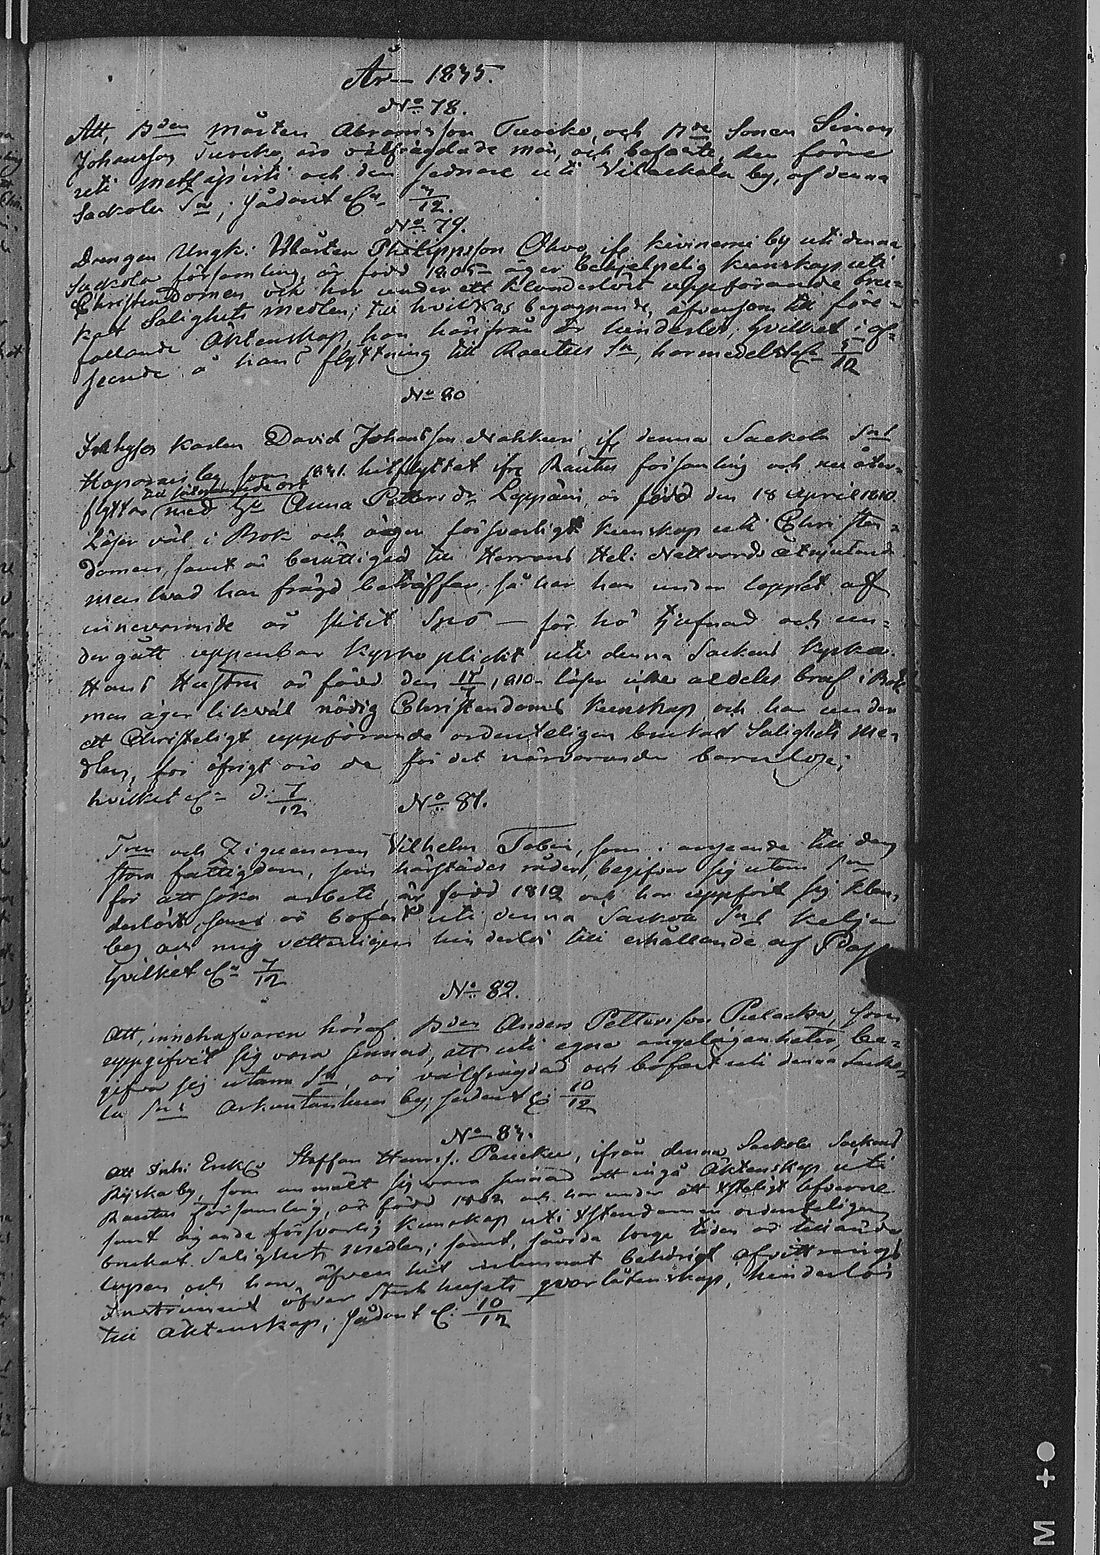 År 1835.
No 78.
Att, Bden Mårten Abramsson Turcke och Bde Sonen Simon
Johansson Turcke äro välfrägdade män, och bofaste, den förre
uti Metsäpirti och den sednare uti Vilackala by, af denna
Sackola Sn; sådant Cn 7/12.
No 79.
Drengen Ungk: Mårten Philippsson Orvo ifr. Kiviniemi by uti denna
Sackola församling, är född 1805 äger behjelpelig kunskap uti
Christendomen och har under ett klanderlöst uppförande bru-
kat Salighets medlen; till hvilkas begagnande, äfvensom till före-
fallande Äktenskap, han härifrån är hinderlös; hvilket i af-
seende å hans flyttning till Rautus Sn, harmedelst Cn 5/12
No 80
Inhyses Karlen David Johansson Nakkuri, ifr denna Sackola Sns
Haparais by, som 1831. hitflyttat ifr Rautus församling och nu åter-
flyttar till förenämnde ort med Hu Anna Pettersdr Leppäin, är född den 18 April 1810
Läser väl i Bok och äger försvarligt kunskap uti Christen-
domen, samt är berättigad till Herrans Hel: Nattvards åtnjutande
men hvad hans frägd beträffar, så har han under loppet af
innevarande år slitit Spö — för hö tjufnad och un-
dergått uppenbar Kyrko plickt uti denna Sockens Kyrka.
Hans Hustru är född den 17/7 1810 läser icke aldeles braf i Bok
men äger likväl nödig Christendoms kunskap och har under
ett Christeligt uppförande ordenteligen brukat Salighets me-
dlen, för öfrigt äro de för det närvarande barnlöse;
hvilket Cn d. 7/12
No 81.
Torp och Ziguenaren Vilhelm Tobin, som i anseende till den
stora fattigdom, som härstädes råder, begifver sig utom Sn
för att söka arbete, är född 1812 och har uppfört sig klan-
derlöst, samt är bofast uti denna Sackola Sns Kelja
by och mig vetterligen hinderlös till erhållande af Pass
hvilket Cn 7/12
No 82.
Att, innehafvaren häraf Bden Anders Pettersson Pulacka, som
uppgifvit sig vara sinnad, att uti egna angelägenheter be-
gifva sig utom Sn, är välfrägdad och bofast uti denna Sacko-
la Sns Arkuntanhua by; sådant C. 10/12
No 83.
Att Enkl. Staffan Hanss. Paucku, ifrån denna Sackola Sockens
Riiska by, som anmält sig vara sinnad att ingå Äktenskap uti
Rautus församling, är född 1802 och har under ett Xsteligt lefverne
samt ägande försvarlig kunskap uti Xstendomen ordenteligen
brukat Salighets medlen; samt, såvida sorge tiden är tilländu-
lupen, och han, äfven hit inlemnat behörigt afvittrings
Instrument öfver Sterbhusets qvarlåtenskap, hinderlös
till Äktenskap; sådant C. 10/12
M